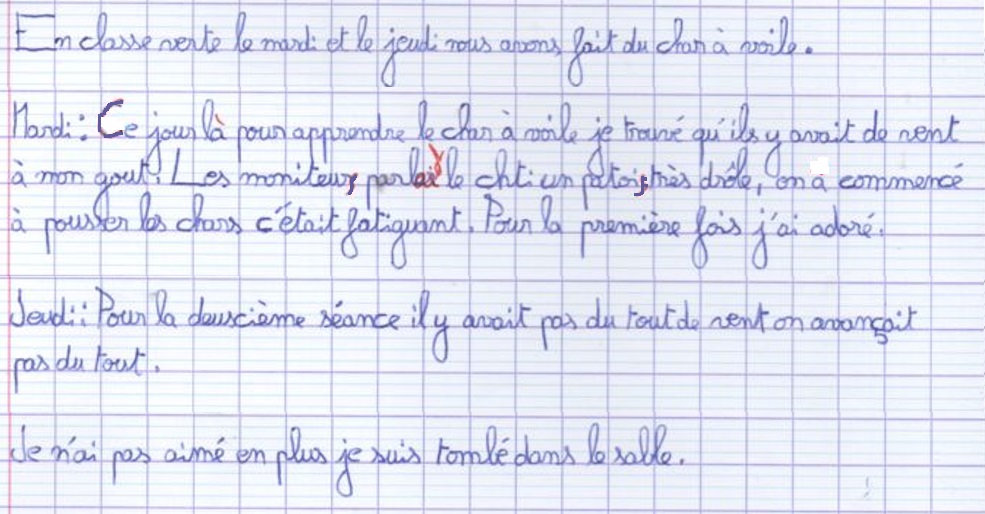 En classe verte le mardi et le jeudi nous avons fait du char à voile.
Mardi : Ce jour là pour apprendre le char à voile je trouvé qu'ils y avait de vent
à mon gout. Les moniteurs parlai le chti un patois, très drôle, on a commencé
à pousser les chars c'était fatiguant. Pour la première fois j'ai adoré.
Jeudi : Pour la deuxcième séance il y avait pas du tout de vent on avançait
pas du tout.
Je n'ai pas aimé en plus je suis tombé dans le sable.